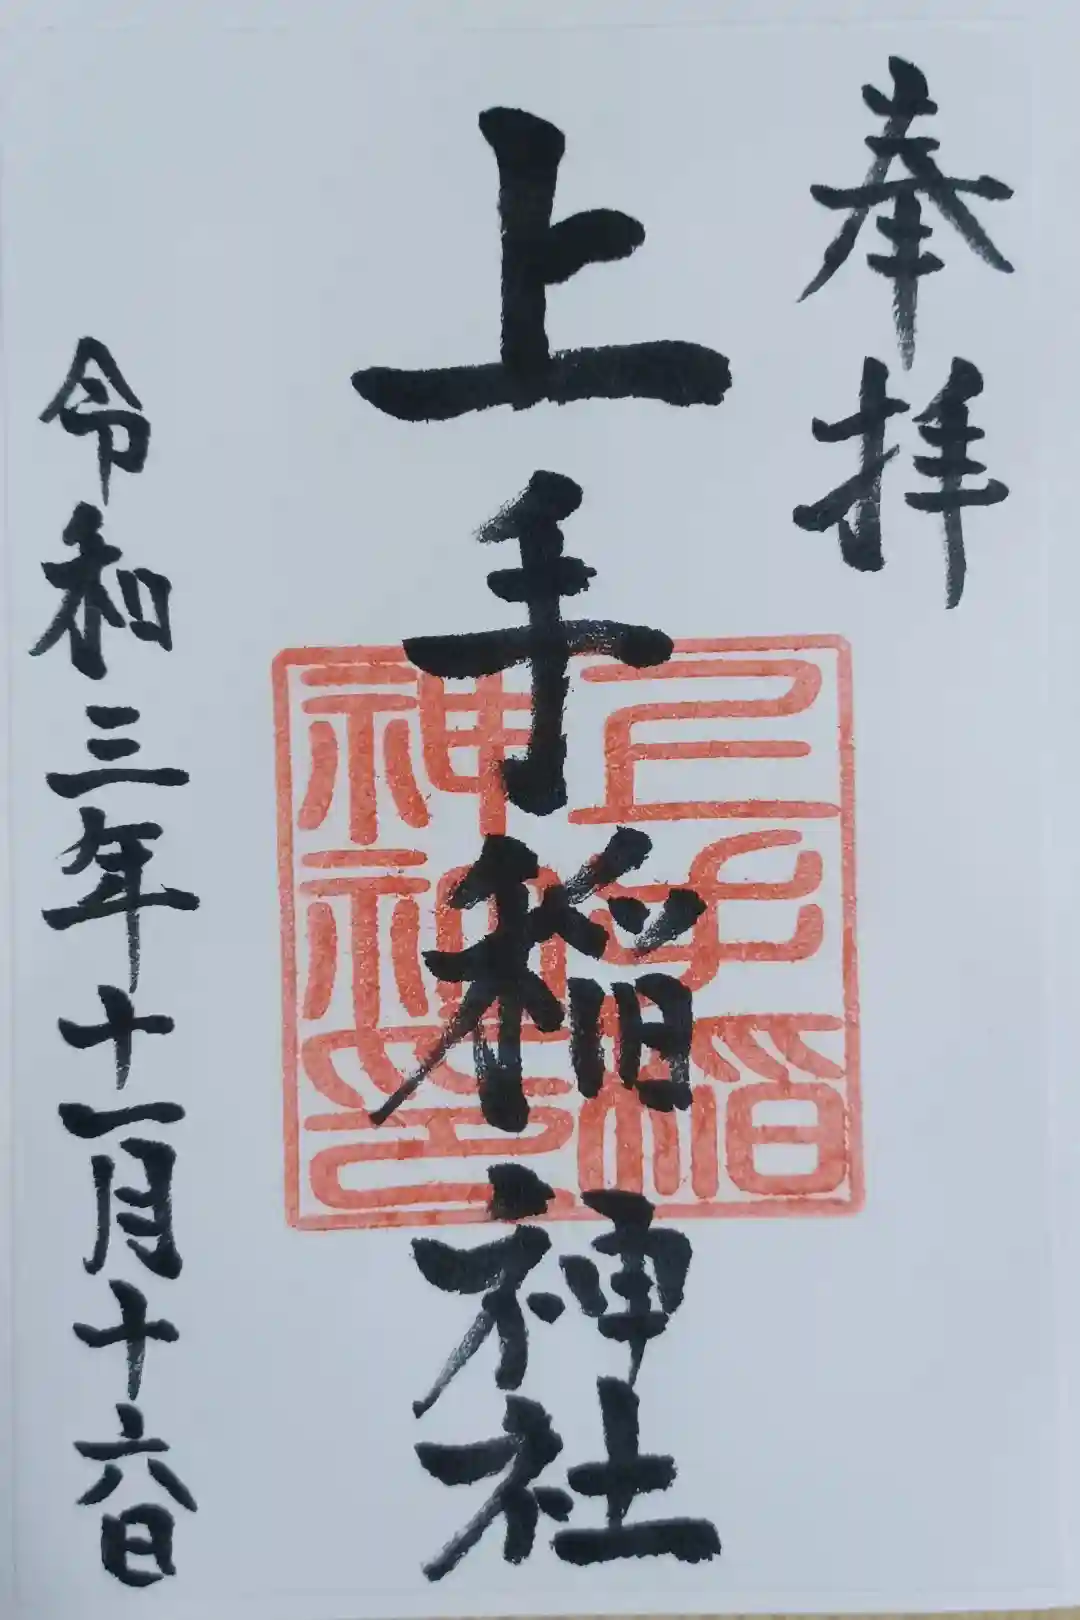 奉拝
上手稲神社
令和三年十一月十六日
上手稲
神社印